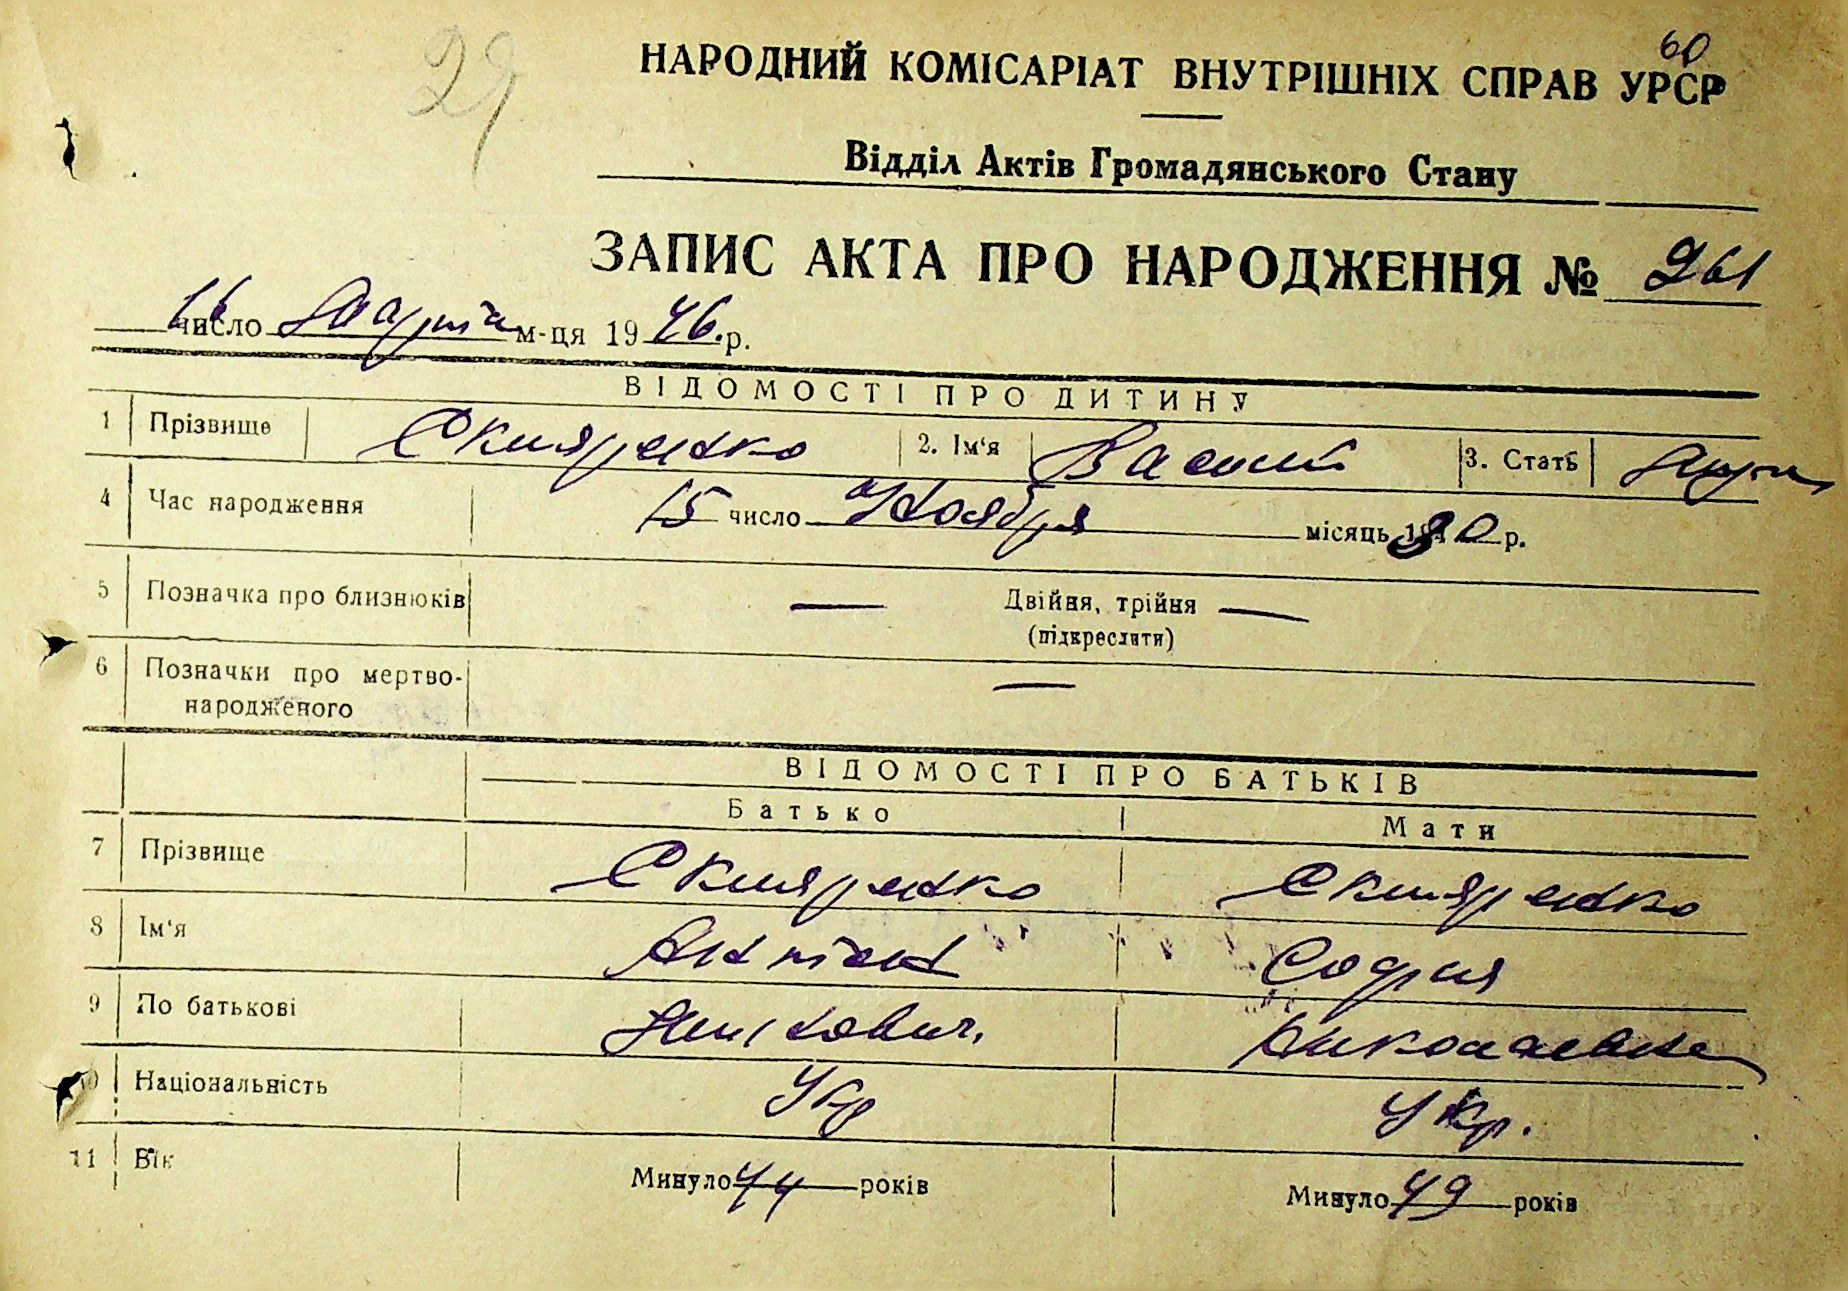 29
60
НАРОДНИЙ КОМІСАРІАТ ВНУТРІШНІХ СПРАВ УРСР
Відділ Актів Громадянського Стану
ЗАПИС АКТА ПРО НАРОДЖЕННЯ № 261
16 число Марта м-ця 1946. р.
ВІДОМОСТІ ПРО ДИТИНУ
1 Прізвище Скляренко 2. Ім'я Василий 3. Стать
4 Час народження 15 число Ноября місяць 1930 р.
5 Позначка про близнюків — Двійня, трійня —
(підкреслити)
6 Позначки про мертво-
народженого —
ВІДОМОСТІ ПРО БАТЬКІВ
Батько Мати
7 Прізвище Скляренко Скляренко
8 Ім'я Антон София
9 По батькові Николаевна
10 Національність Укр Укр.
11 Вік Минуло 44 років Минуло 49 років